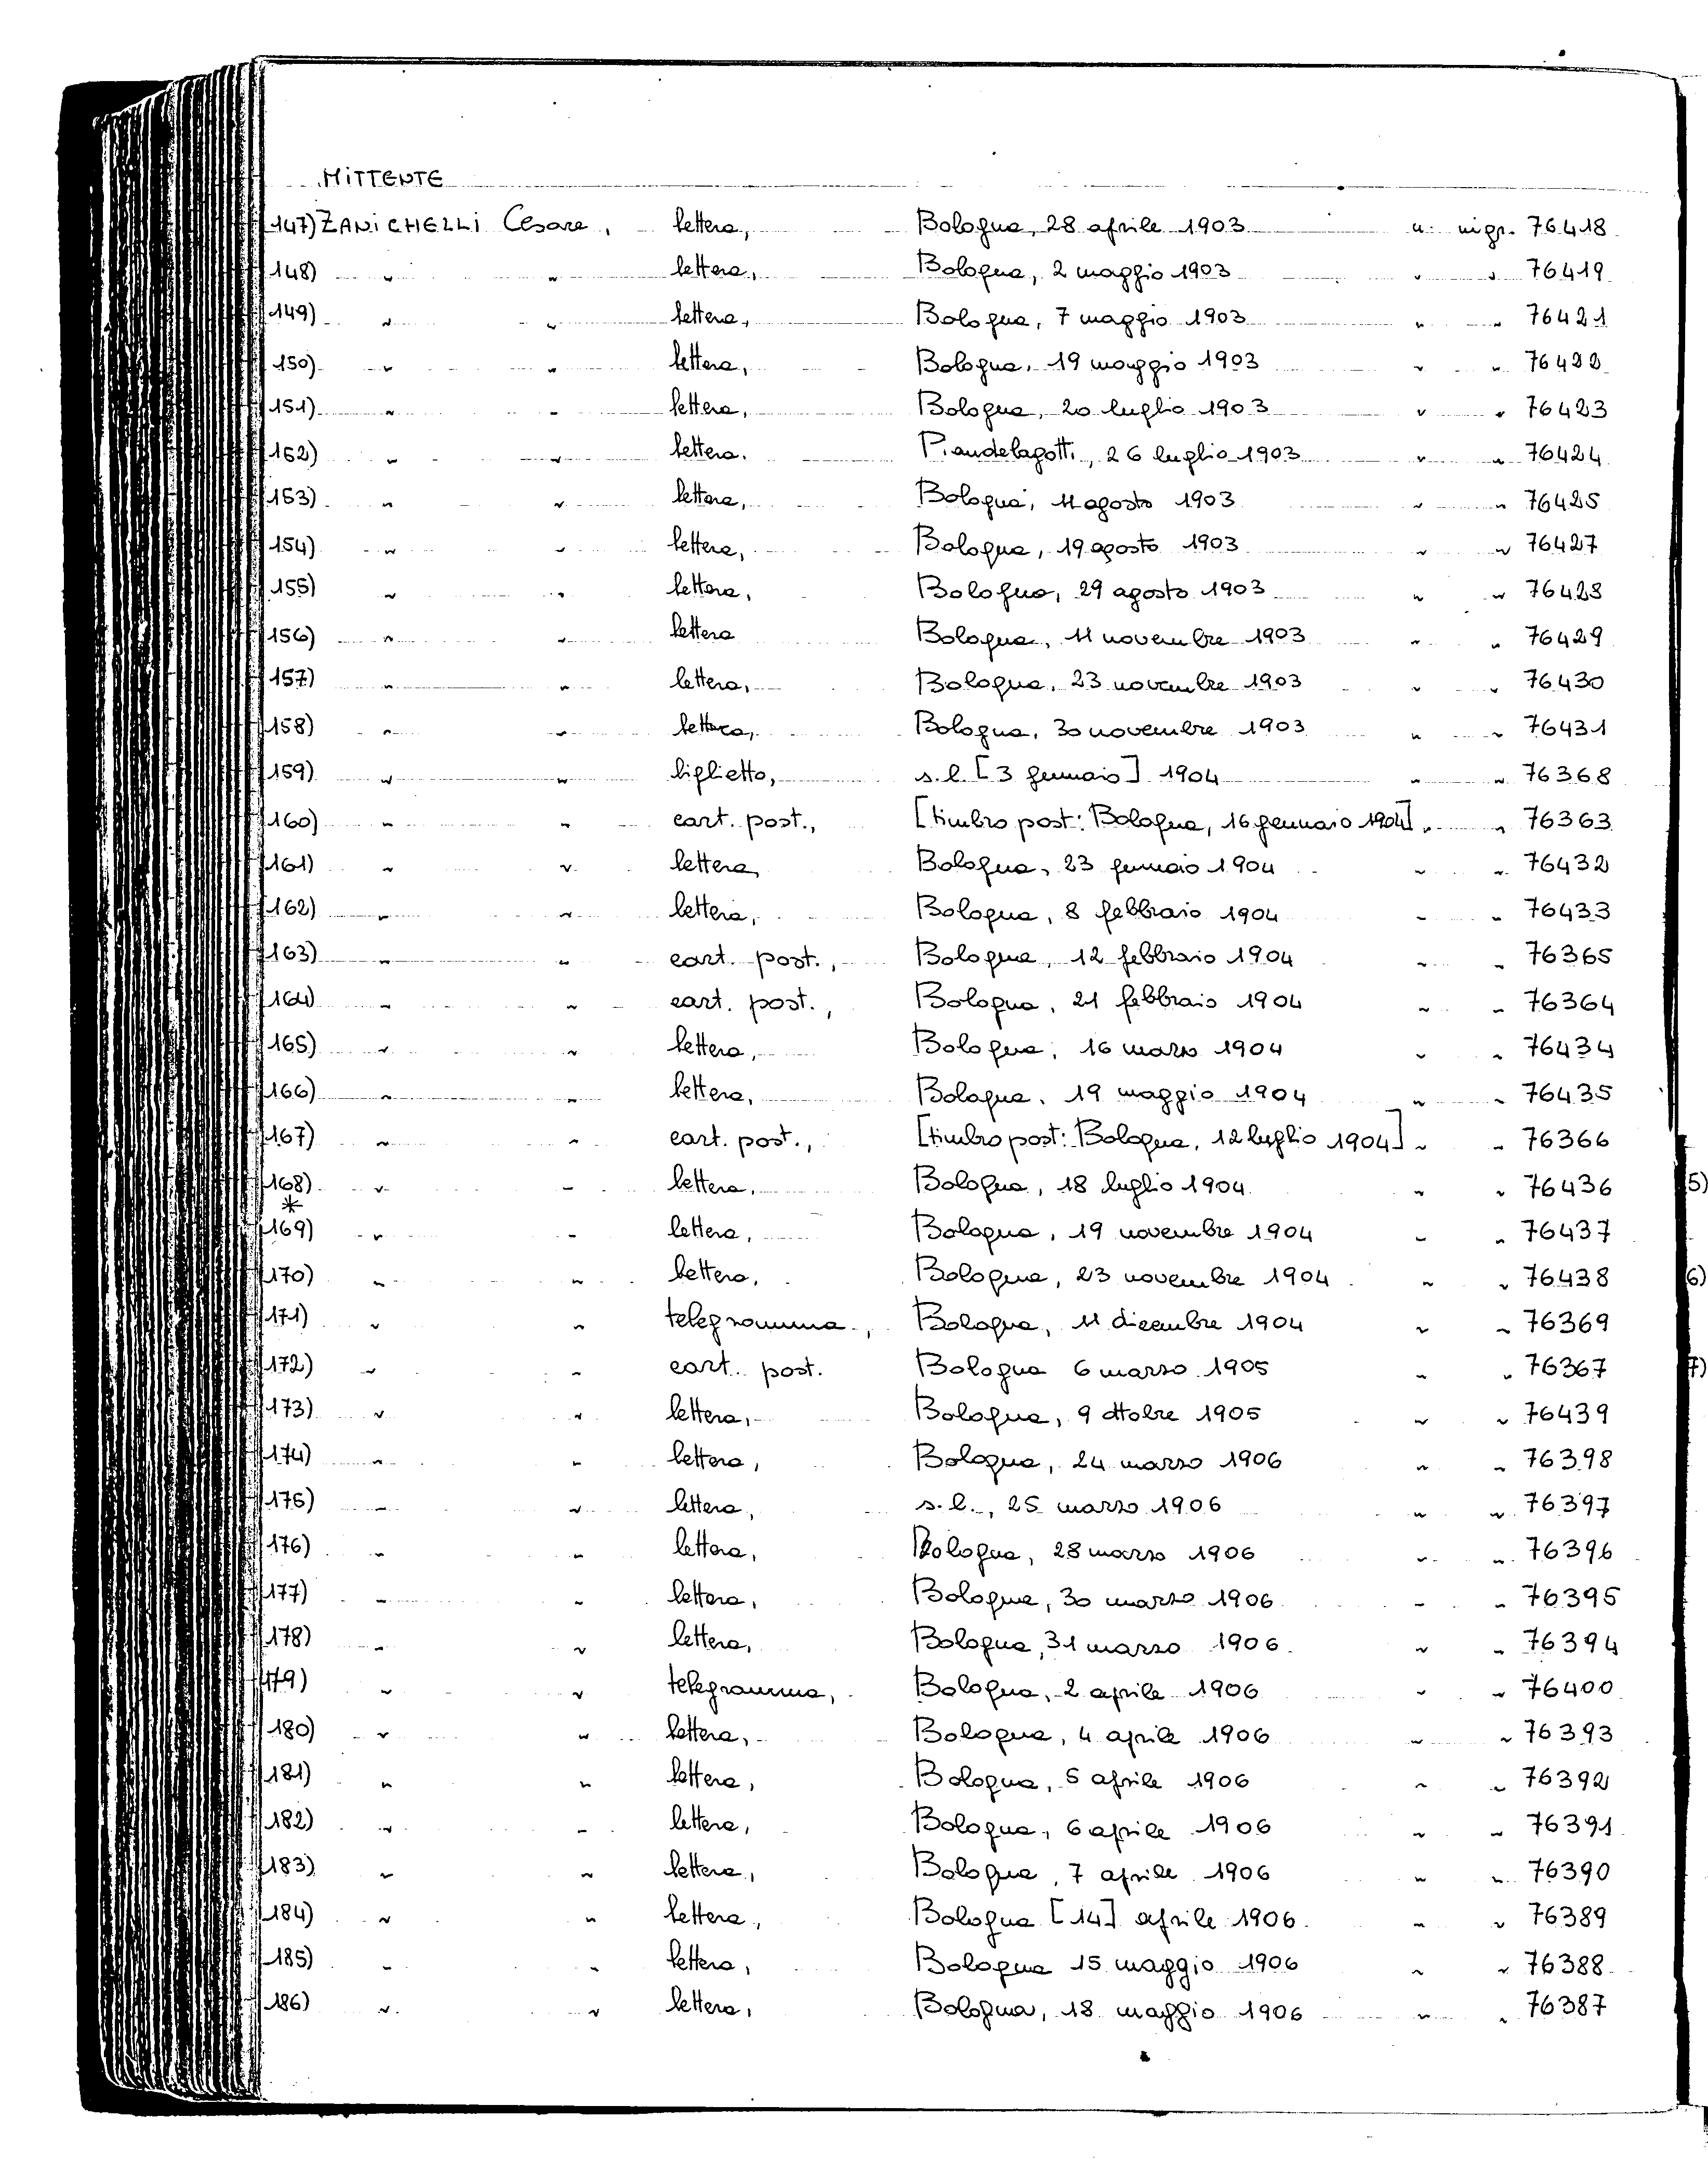 MITTENTE
147) ZANICHELLI Cesare, lettera, Bologna, 28 aprile 1903 n. nigr. 76418
148) " " lettera, Bologna, 2 maggio 1903 " " 76419
149) " " lettera, Bologna, 7 maggio 1903 " " 76421
150) " " lettera, Bologna, 19 maggio 1903 " " 76422
151) " " lettera, Bologna, 20 luglio 1903 " " 76423
152) " " lettera. Piandelagotti, 26 luglio 1903 " " 76424
153) " " lettera, Bologna, 11 agosto 1903 " " 76425
154) " " lettera, Bologna, 19 agosto 1903 " " 76427
155) " " lettera, Bologna, 29 agosto 1903 " " 76428
156) " " lettera Bologna, 11 novembre 1903 " " 76429
157) " " lettera, Bologna, 23 novembre 1903 " " 76430
158) " " lettera, Bologna, 30 novembre 1903 " " 76431
159) " " biglietto, s.l. [3 gennaio] 1904 " " 76368
160) " " cart. post., [timbro post: Bologna, 16 gennaio 1904] " " 76363
161) " " lettera, Bologna, 23 gennaio 1904 " " 76432
162) " " lettera, Bologna, 8 febbraio 1904 " " 76433
163) " " cart. post., Bologna, 12 febbraio 1904 " " 76365
164) " " cart. post., Bologna, 21 febbraio 1904 " " 76364
165) " " lettera, Bologna, 16 marzo 1904 " " 76434
166) " " lettera, Bologna, 19 maggio 1904 " " 76435
167) " " cart. post., [timbro post: Bologna, 12 luglio 1904] " " 76366
168) " " lettera, Bologna, 18 luglio 1904 " " 76436 5)
*
169) " " lettera, Bologna, 19 novembre 1904 " " 76437
170) " " lettera, Bologna, 23 novembre 1904 " " 76438 6)
171) " " telegramma, Bologna, 11 dicembre 1904 " " 76369
172) " " cart. post. Bologna 6 marzo 1905 " " 76367 7)
173) " " lettera, Bologna, 9 ottobre 1905 " " 76439
174) " " lettera, Bologna, 24 marzo 1906 " " 76398
175) " " lettera, s.l., 25 marzo 1906 " " 76397
176) " " lettera, Bologna, 28 marzo 1906 " " 76396
177) " " lettera, Bologna, 30 marzo 1906 " " 76395
178) " " lettera, Bologna, 31 marzo 1906 " " 76394
179) " " telegramma, Bologna, 2 aprile 1906 " " 76400
180) " " lettera, Bologna, 4 aprile 1906 " " 76393
181) " " lettera, Bologna, 5 aprile 1906 " " 76392
182) " " lettera, Bologna, 6 aprile 1906 " " 76391
183) " " lettera, Bologna, 7 aprile 1906 " " 76390
184) " " lettera, Bologna [14] aprile 1906 " " 76389
185) " " lettera, Bologna 15 maggio 1906 " " 76388
186) " " lettera, Bologna, 18 maggio 1906 " " 76387